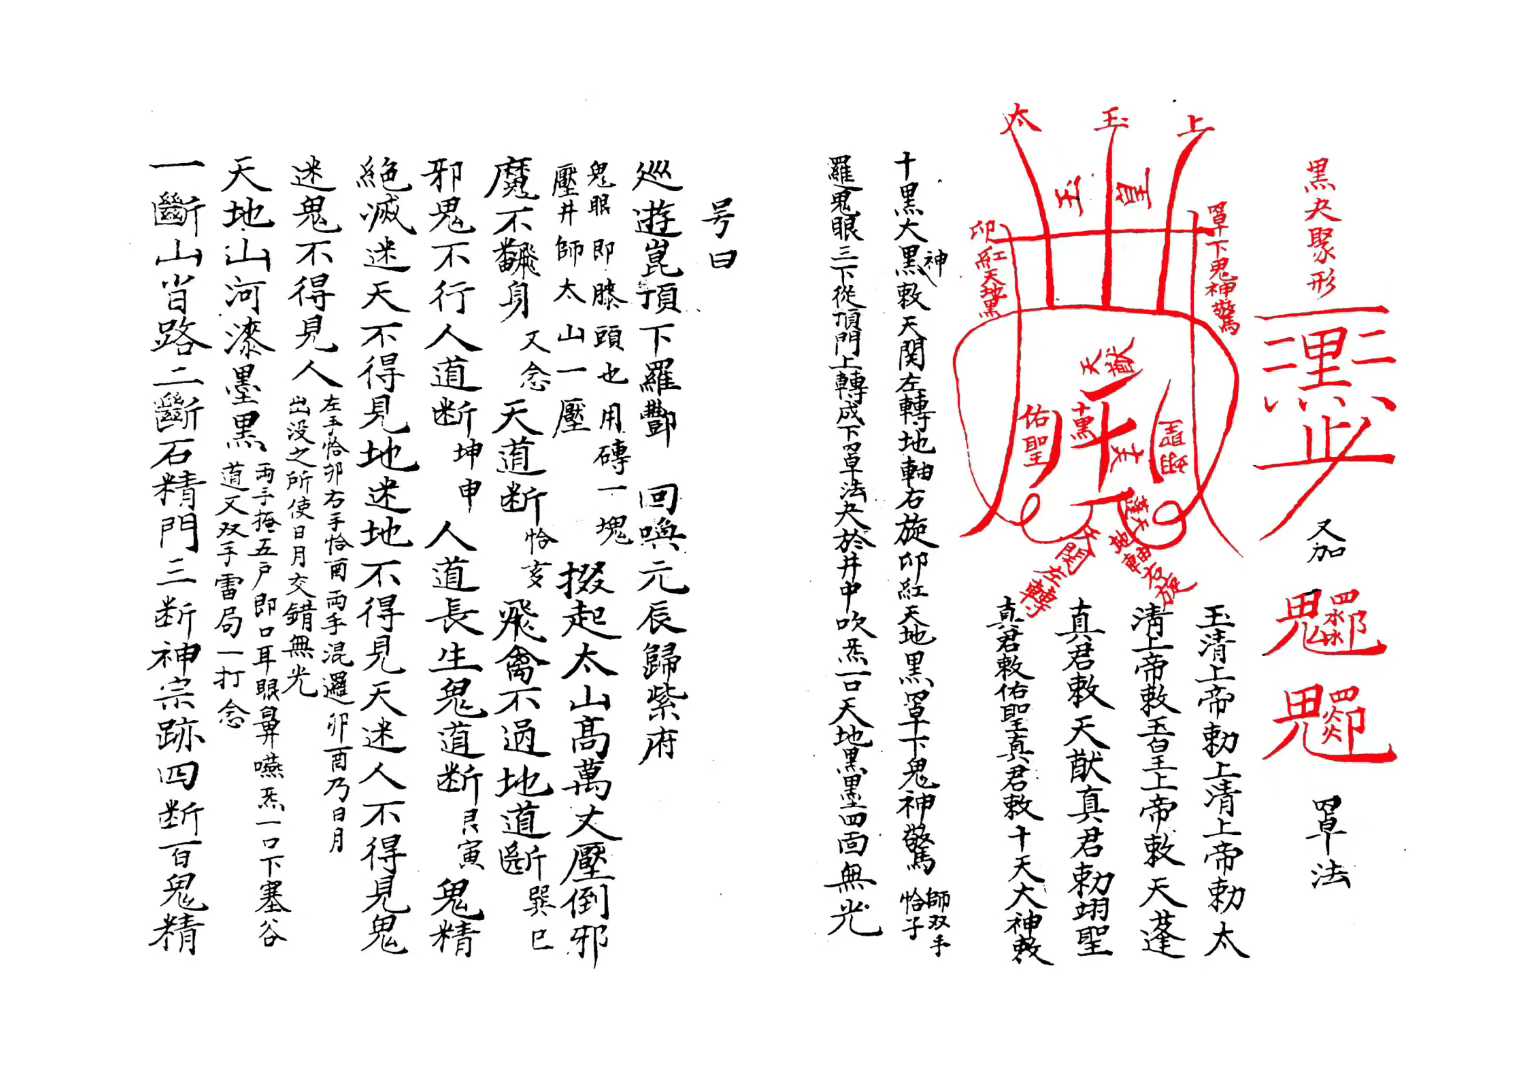 黑夬聚形
又加
罩法
太 玉 上
玉皇
罩下鬼神驚
卬紅天地黑
天猷
佑聖
十黑大
翊聖
天蓬
天関左轉
地軸右旋
玉清上帝勅上清上帝勅太
清上帝敕玉皇上帝敕天蓬
真君敕天猷真君勅翊聖
真君敕佑聖真君敕十天大神敕
十黑大黑神敕天関左轉地軸右旋卬紅天地黑罩下鬼神驚 師双手恰子
羅鬼眼三下從頂門上轉成下罩法夬於井中吹炁一口天地黑黑四面無光
号曰
巡遊崑頂下羅酆 回喚元辰歸紫府
鬼眼即膝頭也用磚一塊
壓井師太山一壓
掇起太山高萬丈壓倒邪
魔不翻身 又念 天道断 恰亥 飛禽不過地道断 巽巳
邪鬼不行人道断 坤申 人道長生鬼道断 艮寅 鬼精
絶滅迷天不得見地迷地不得見天迷人不得見鬼
迷鬼不得見人 左手恰卯右手恰酉両手混邏卯酉乃日月
出没之所使日月交錯無光
天地山河漆墨黑 両手掩五户即口耳眼鼻嚥炁一口下塞谷
道又双手雷局一打念
一斷山肖路二斷石精門三断神宗跡四断百鬼精